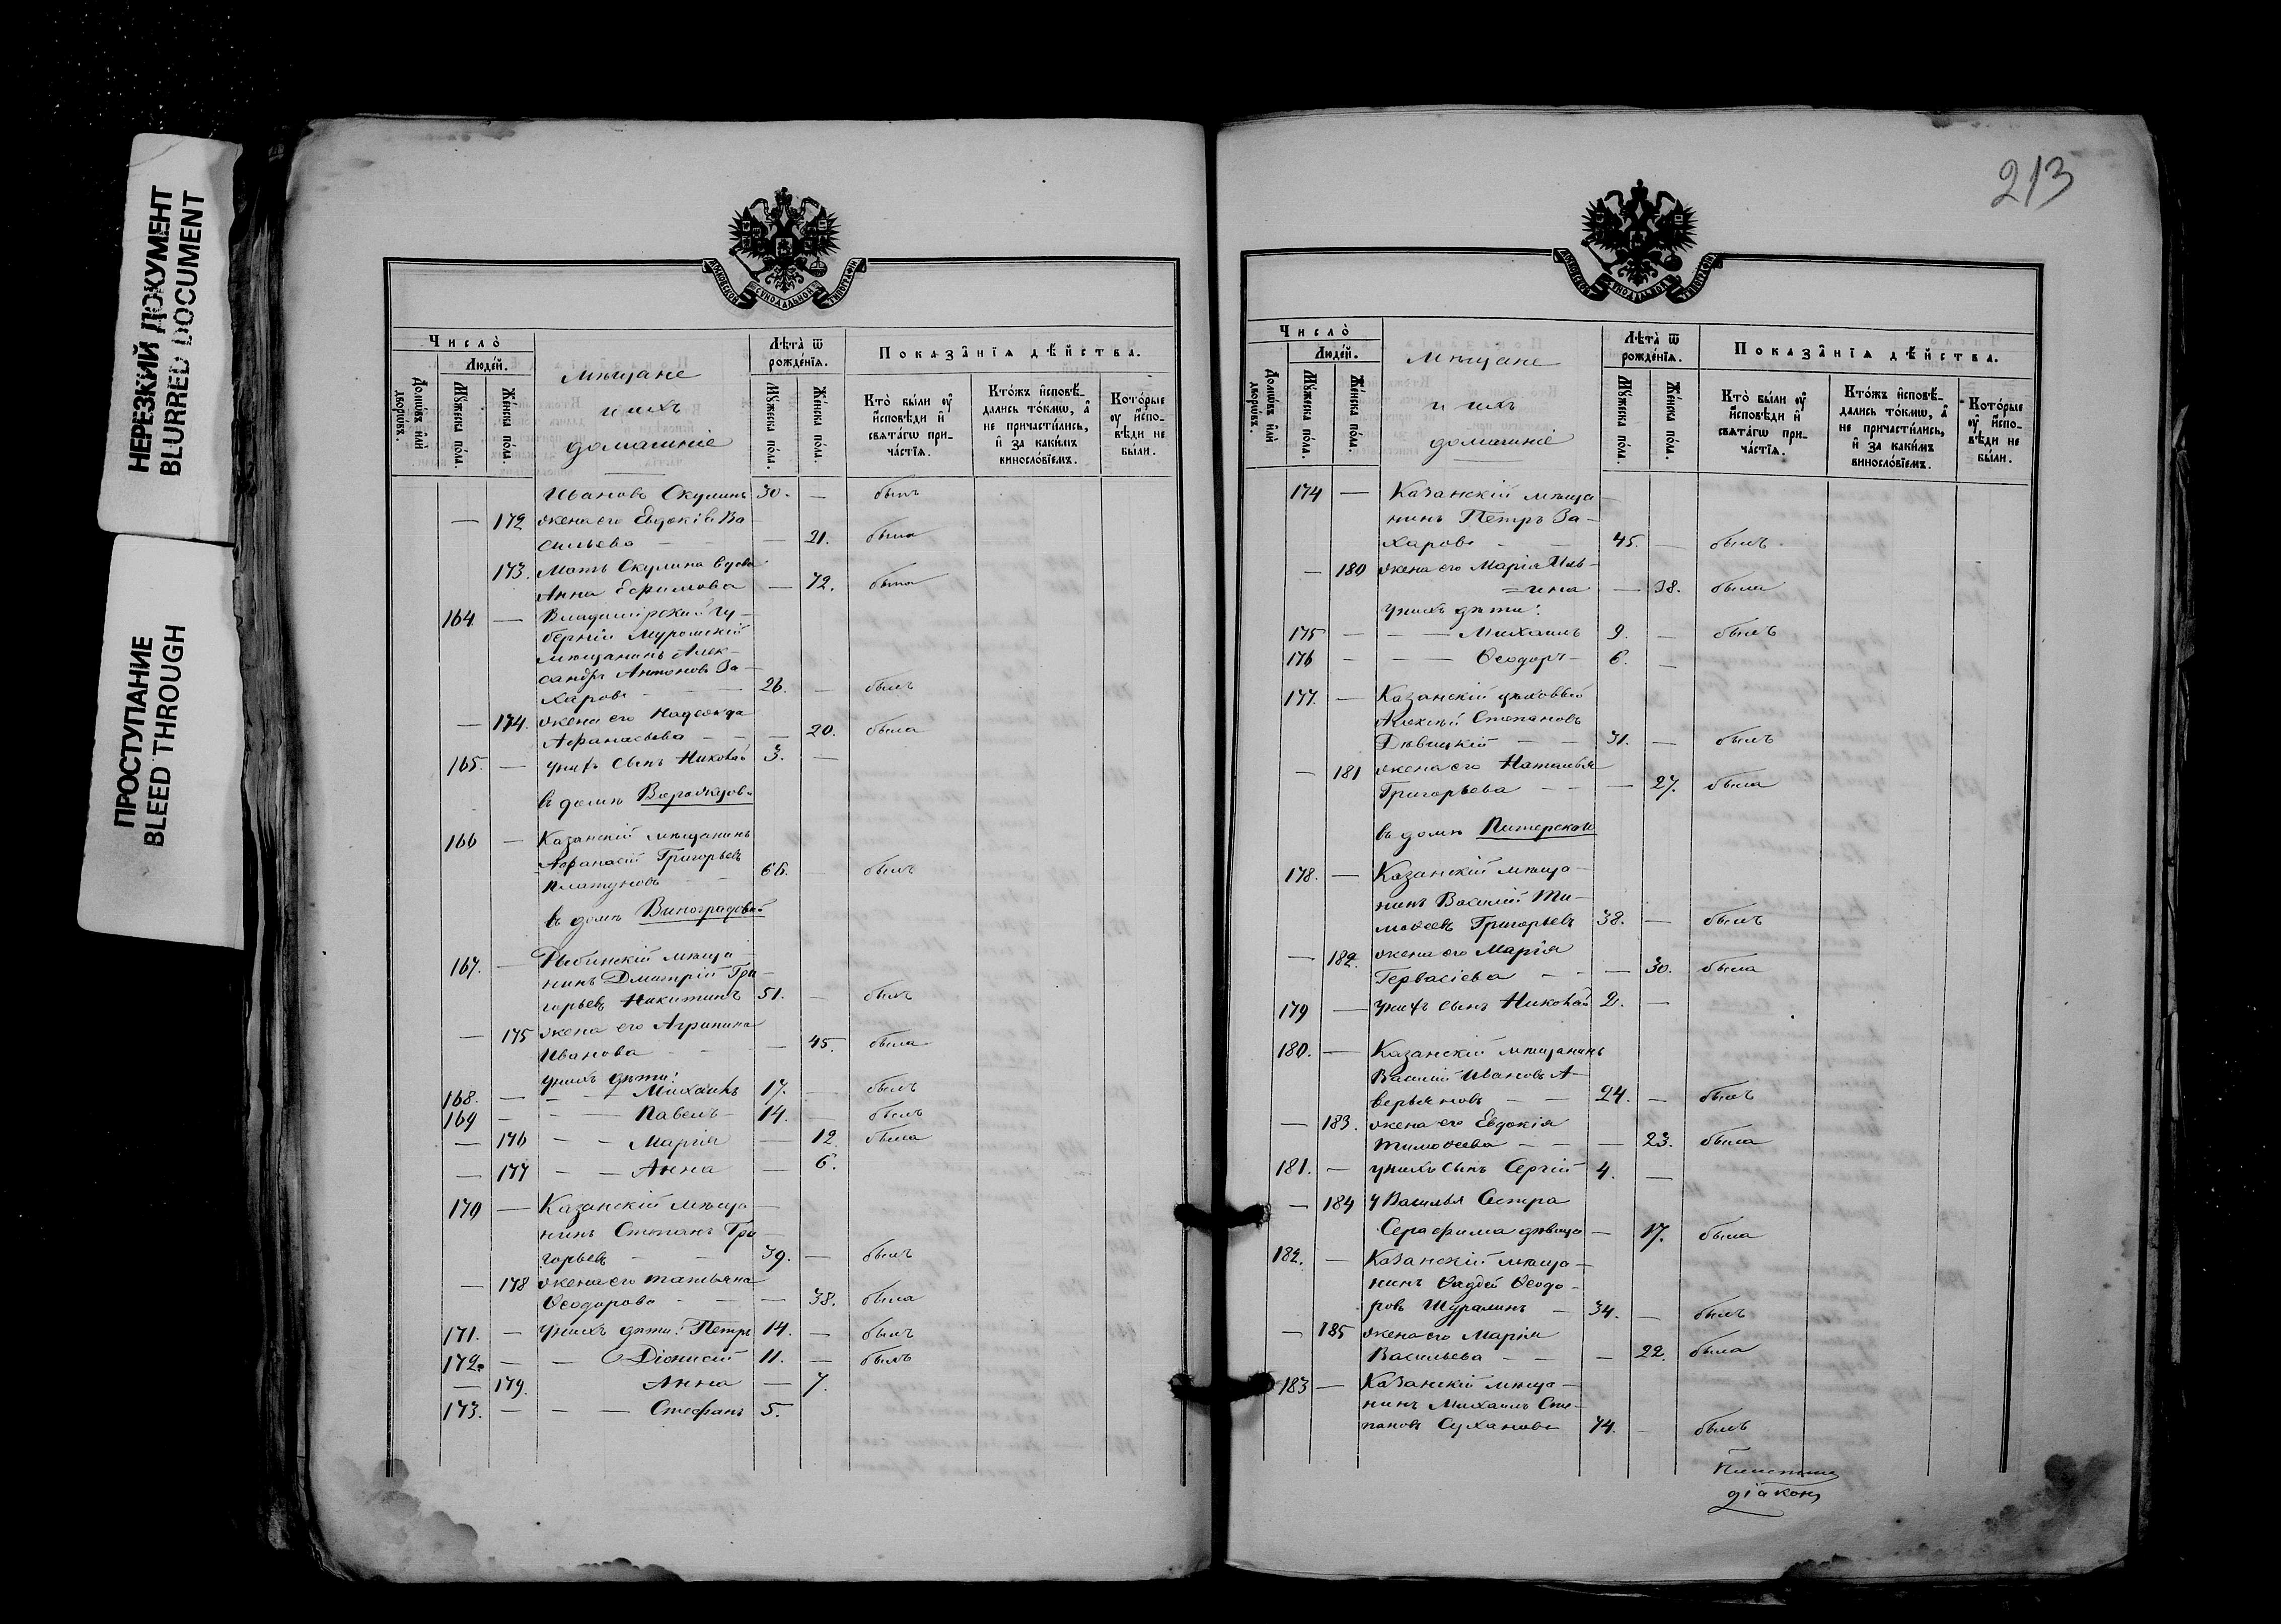 НЕРЕЗКИЙ ДОКУМЕНТ
BLURRED DOCUMENT
ПРОСТУПАНИЕ
BLEED THROUGH
МОСКОВСКОЙ СѴНОДАЛЬНОЙ ТИПОГРАФІИ
Число̀
Людей.
Домѡвъ и҆лѝ дворѡвъ.
Мꙋжеска пола.
Женска пола.
Мѣщане
и ихъ
домашніе
Лѣта̀ ѿ рожденїѧ.
Мꙋжеска пола.
Женска пола.
Показанїѧ дѣйства.
Кто̀ были оу҆ и҆сповѣди и҆ свѧтагѡ причастїѧ.
Ктожъ и҆сповѣдались токмѡ, а҆ не причастились, и҆ за какимъ винословїемъ.
Которые оу҆ и҆сповѣди не были.
Ивановъ Окулинъ 30. — былъ
— 172 жена его Евдокія Ва-
сильева — — 21. была
173. Мать Окулина вдова
Анна Ефимова — 72. была
164 — Владимірской гу-
берніи Муромскій
мѣщанинъ Алек-
сандръ Антоновъ За-
харовъ — 26. — былъ
— 174. жена его Надежда
Афанасьева — — 20. была
165. — у нихъ сынъ Николай 3. —
въ домѣ
166 — Казанскій мѣщанинъ
Афанасій Григорьевъ
Платуновъ — 66. — былъ
въ домѣ Виноградовой
167. — Рыбинскій мѣща-
нинъ Дмитрій Гри-
горьевъ Никитинъ 51. — былъ
— 175 жена его Агрипина
Иванова — — 45. была
у нихъ дѣти:
168. — — Михаилъ 17. — былъ
169 — — Павелъ 14. — былъ
— 176 — — Марія — 12. была
— 177 — — Анна — 6.
170 — Казанскій мѣща-
нинъ Степанъ Гри-
горьевъ — 39. — былъ
— 178 жена его Татьяна
Ѳеодорова — — 38. была
171. — у нихъ дѣти: Петръ 14. — былъ
172. — — Діонисій 11. — былъ
— 179. Анна — 7.
173. — — — Стефанъ 5.
213
МОСКОВСКОЙ СѴНОДАЛЬНОЙ ТИПОГРАФІИ
Число̀
Людей.
Домѡвъ и҆лѝ дворѡвъ.
Мꙋжеска пола.
Женска пола.
Мѣщане
и ихъ
домашніе
Лѣта̀ ѿ рожденїѧ.
Мꙋжеска пола.
Женска пола.
Показанїѧ дѣйства.
Кто̀ были оу҆ и҆сповѣди и҆ свѧтагѡ причастїѧ.
Ктожъ и҆сповѣдались токмѡ, а҆ не причастились, и҆ за какимъ винословїемъ.
Которые оу҆ и҆сповѣди не были.
174 — Казанскій мѣща-
нинъ Петръ За-
харовъ — 45. — былъ
— 180 жена его Марія Иль-
=ина — 38. была
у нихъ дѣти:
175 — — — Михаилъ 9. — былъ
176 — — — Ѳеодоръ — 6. —
177. — Казанскій цѣховый
Алексѣй Степановъ
Дѣвицкій — — 31. — былъ
— 181 жена его Наталья
Григорьева — — — 27. была
въ домѣ Питерскаго
178. — Казанскій мѣща-
нинъ Василій Ти-
моѳеевъ Григорьевъ 38. — былъ
— 182. жена его Марія
Гервасіева — — — 30. была
179 — у нихъ сынъ Николай 2. —
180. — Казанскій мѣщанинъ
Василій Ивановъ А-
верьяновъ — — 24. — былъ
— 183. жена его Евдокія
Тимоѳеева — — — 23. была
181. — у нихъ сынъ Сергій 4. —
— 184 у Василья Сестра
Серафима дѣвица — 17. была
182. — Казанскій мѣща-
нинъ Ѳадей Ѳеодо-
ровъ — 34. — былъ
— 185 жена его Марія
Васильева — — — 22. была
183 — Казанскій мѣща-
нинъ Михаилъ Сте-
пановъ Сухановъ 74. — былъ
діаконъ